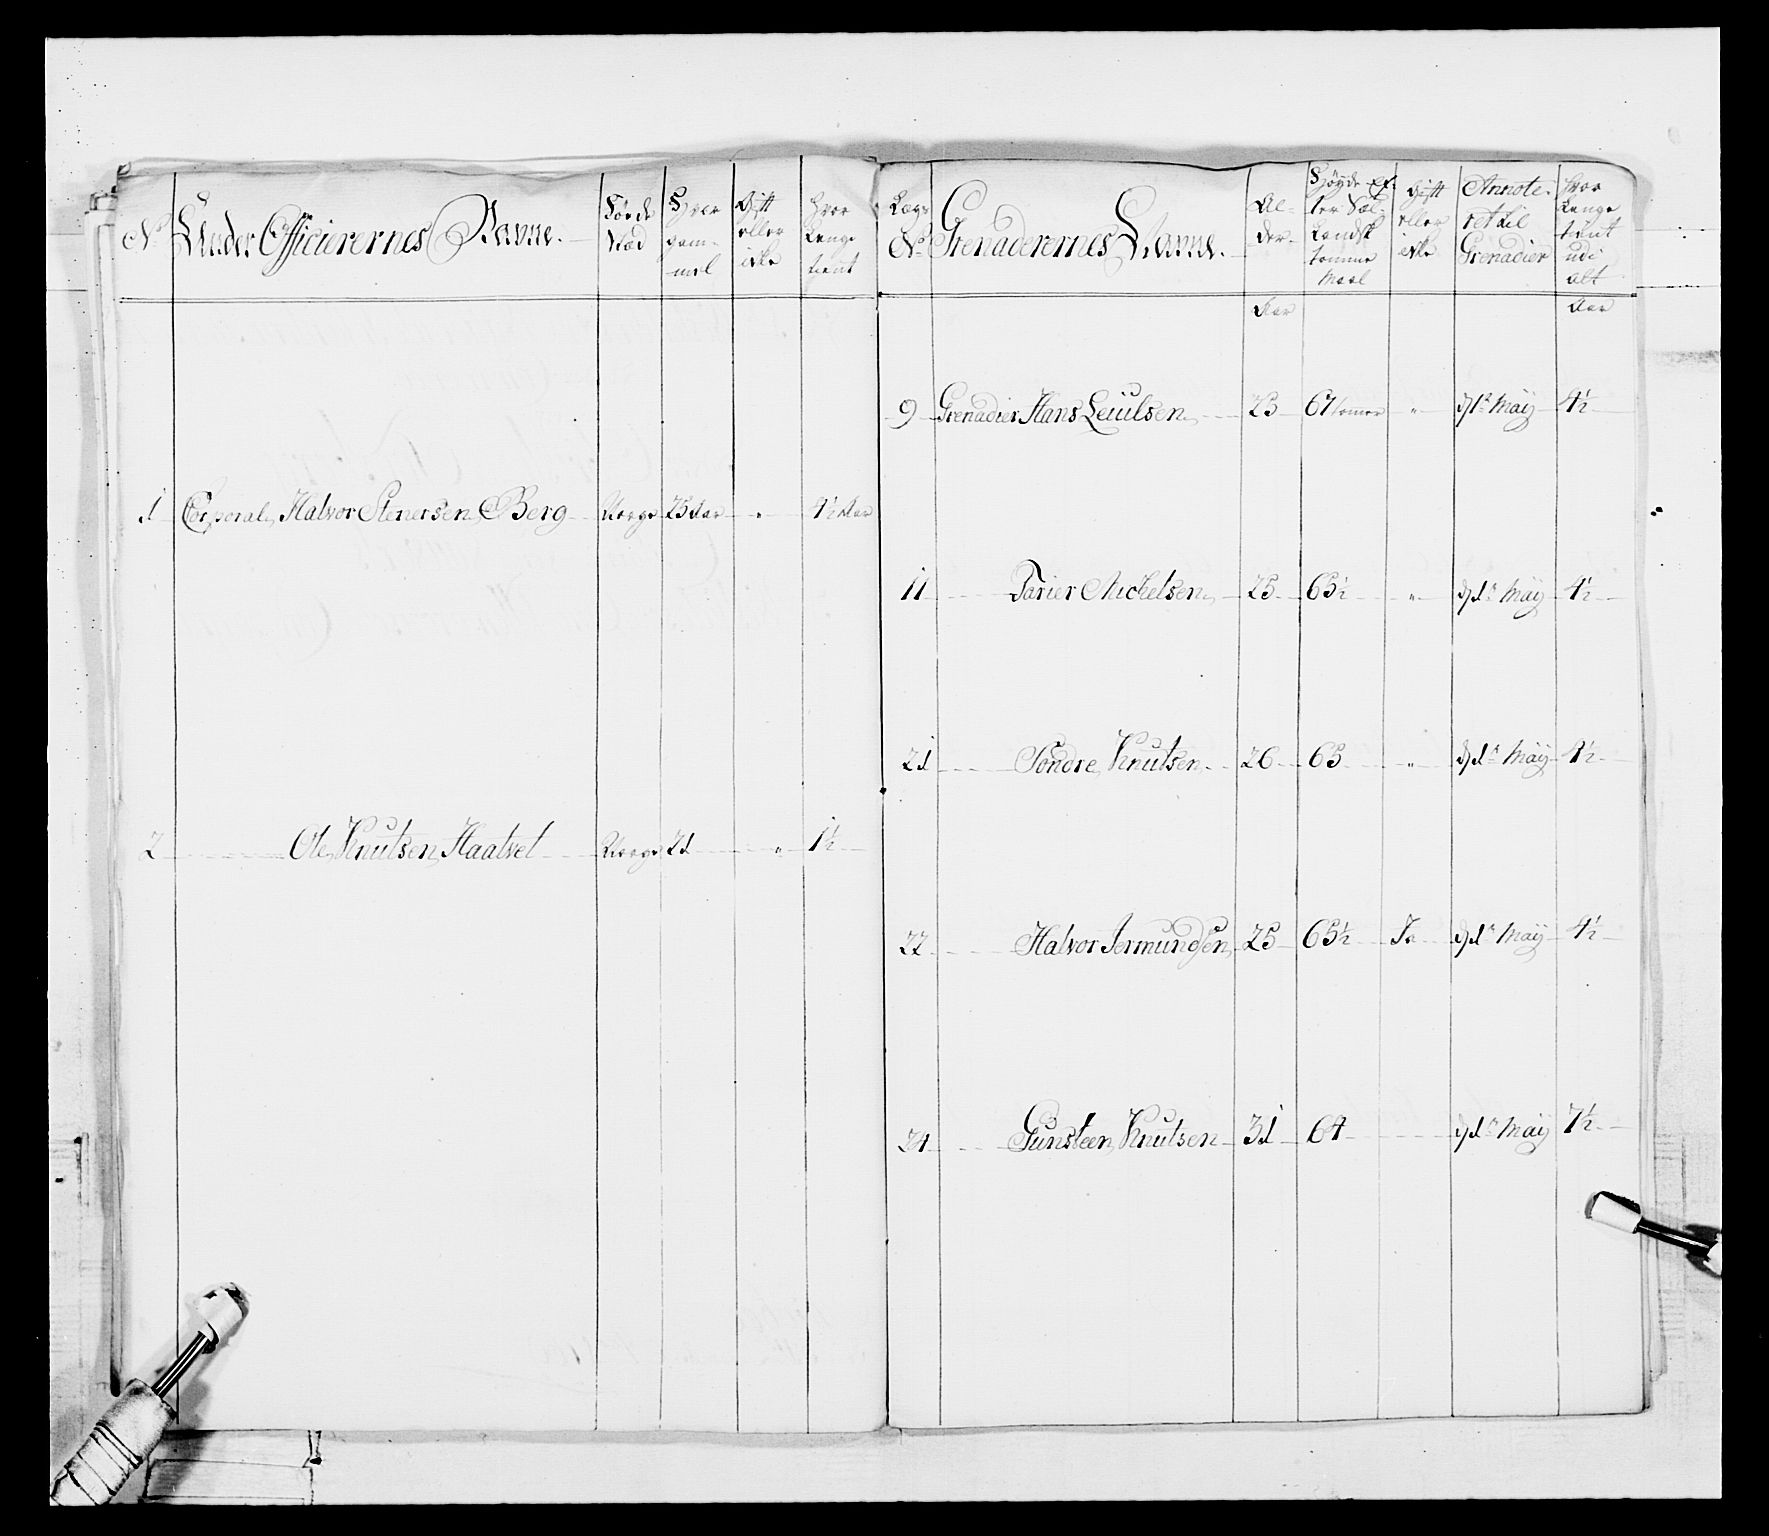 No Under Officierernes Navne. Förde Stæd Hvor gam- mel Gift eller ikke Hvor Lenge tient
1 Corporal Halvor Stenersen Berg Norge 25 Aar " 4½ Aar
2 Ole Knutsen Haatvet Norge 21 " 1½
Lægs No Grenaderernes Navne. Al- der. Höyde ef- ter Siel- Landsk tomme Maal Gift eller ikke Annote- ret til Grenadier Hvor Lenge tient udi alt
Aar Aar
9 Grenadier Hans Leuulsen 23 67 tomer " d 1ste Maij 4½
11 Tarier Michelsen 25 65½ " d 1ste Maij 4½
21 Tondre Knutsen 26 65 " d 1ste Maij 4½
22 Halvor Jermundsen 25 65½ Ja d 1ste Maij 4½
24 Gunsteen Knutsen 31 64 d 1ste Maij 7½